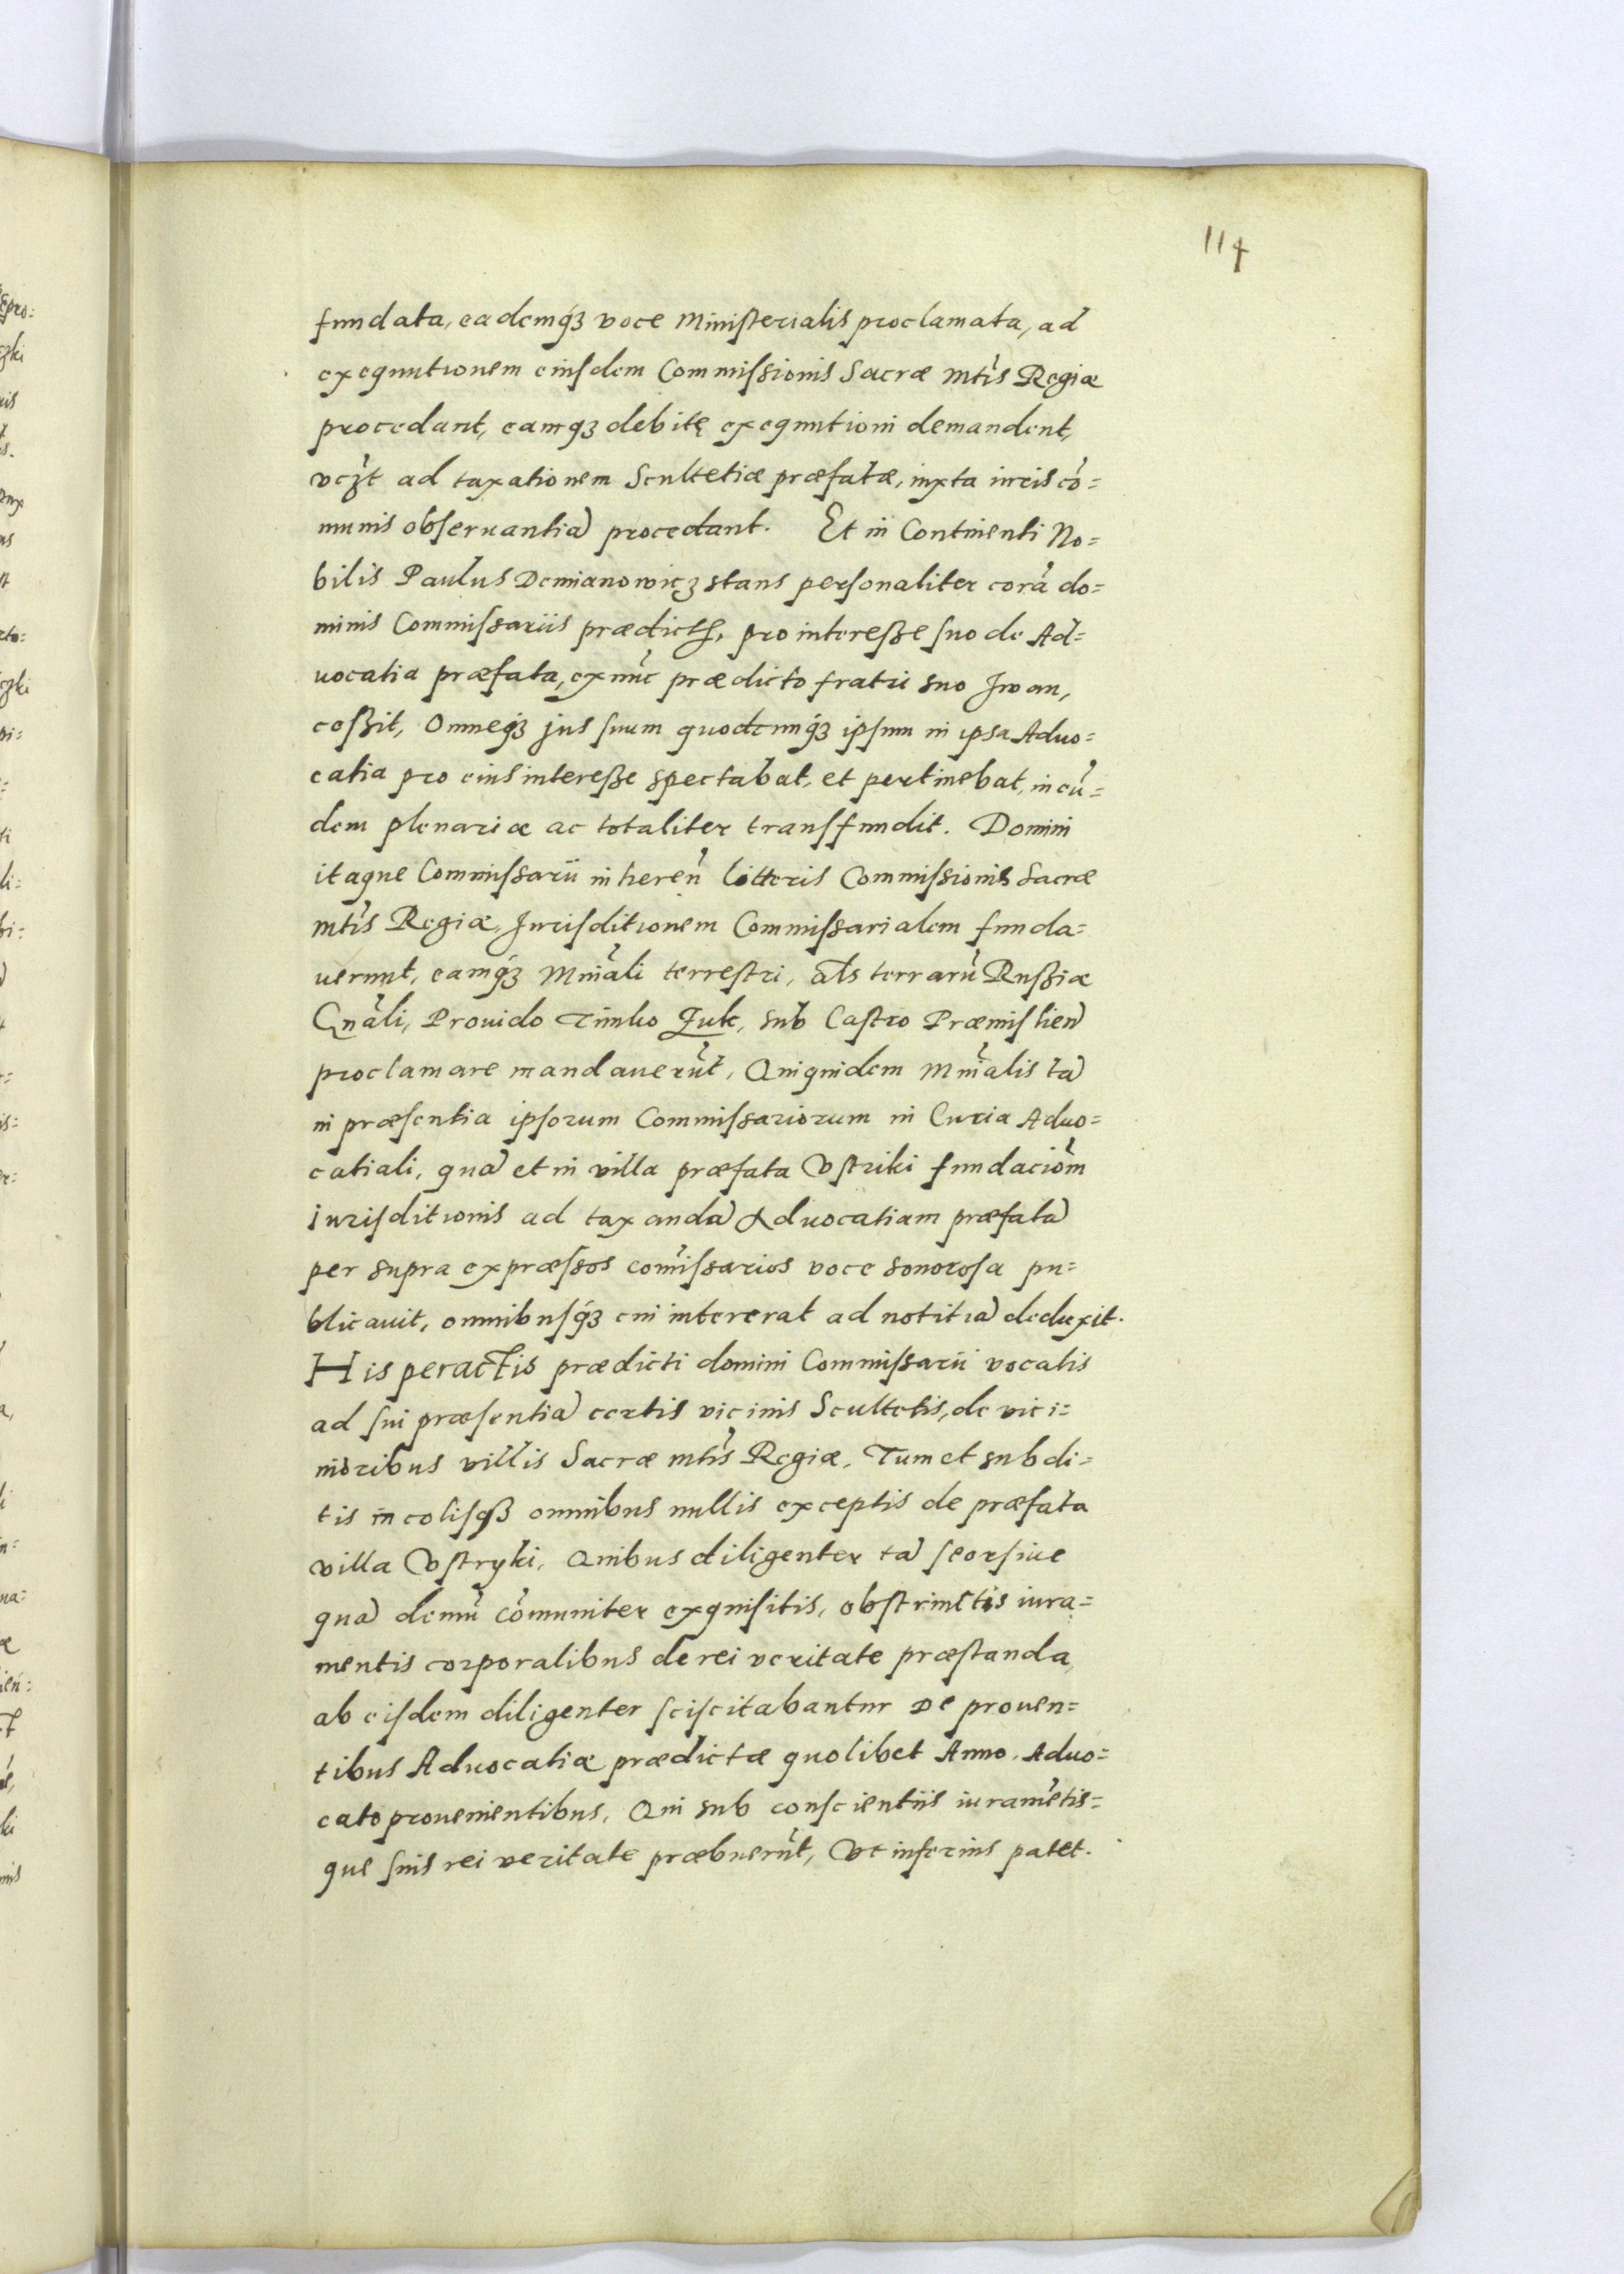 114
fundata, eademq́ꝫ voce Ministerialis proclamata, ad
exequutionem eiusdem Commissionis Sacræ Mtis Regiæ
procedant, eamqꝫ debitę exequutioni demandent,
vczt ad taxationem Scultetiæ præfatæ, iuxta iuris cō=
munis obseruantiā procedant. Et in Continenti No=
bilis Paulus Demianowicz stans personaliter corā do=
minis Commissariis prædictis, pro interesse suo de Ad=
uocatia præfata, ex nūc prædicto fratri suo Iwan,
cessit, Omneq́ꝫ jus suum quodcunq́ꝫ ipsum in ipsa Aduo=
catia pro eius interesse spectabat, et pertinebat, in eū=
dem plenariæ ac totaliter transfundit. Domini
itaque Commissarii inheren̄ litteris Commissionis Sacræ
Mtis Regiæ, Jurisditionem Commissarialem funda=
uerunt, eamq́ꝫ Mnīali terrestri, als terrarū Russiæ
Gnāli, Prouido Timko Zuk, sub Castro Præmislien̄
proclamare mandauerūt, Quiquidem Mnīalis tā
in præsentia ipsorum Commissariorum in Curia Aduo=
catiali, quā et in villa præfata Vstriki fundaciōm
iurisditionis ad taxandā Aduocatiam præfatā
per supra expræssos com̄issarios voce sonorosa pu=
blicauit, omnibusq́ꝫ cui intererat ad notitiā deduxit.
His peractis prædicti domini Commissarii vocatis
ad sui præsentiā certis vicinis Scultetis, de vici=
nioribus villis Sacræ Mtis Regiæ, Tum et subdi=
tis incolisqꝫ omnibus nullis exceptis de præfata
villa Vstryki, Quibus diligenter tā seorsiue
quā demū cōmuniter exquisitis, obstrinctis iura=
mentis corporalibus de rei veritate præstanda,
ab eisdem diligenter sciscitabantur De prouen=
tibus Aduocatiæ prædictæ quolibet Anno, Aduo=
cato prouenientibus, Qui sub conscientiis iuramētis=
que suis rei veritate præbuerūt, Vt inferius patet.